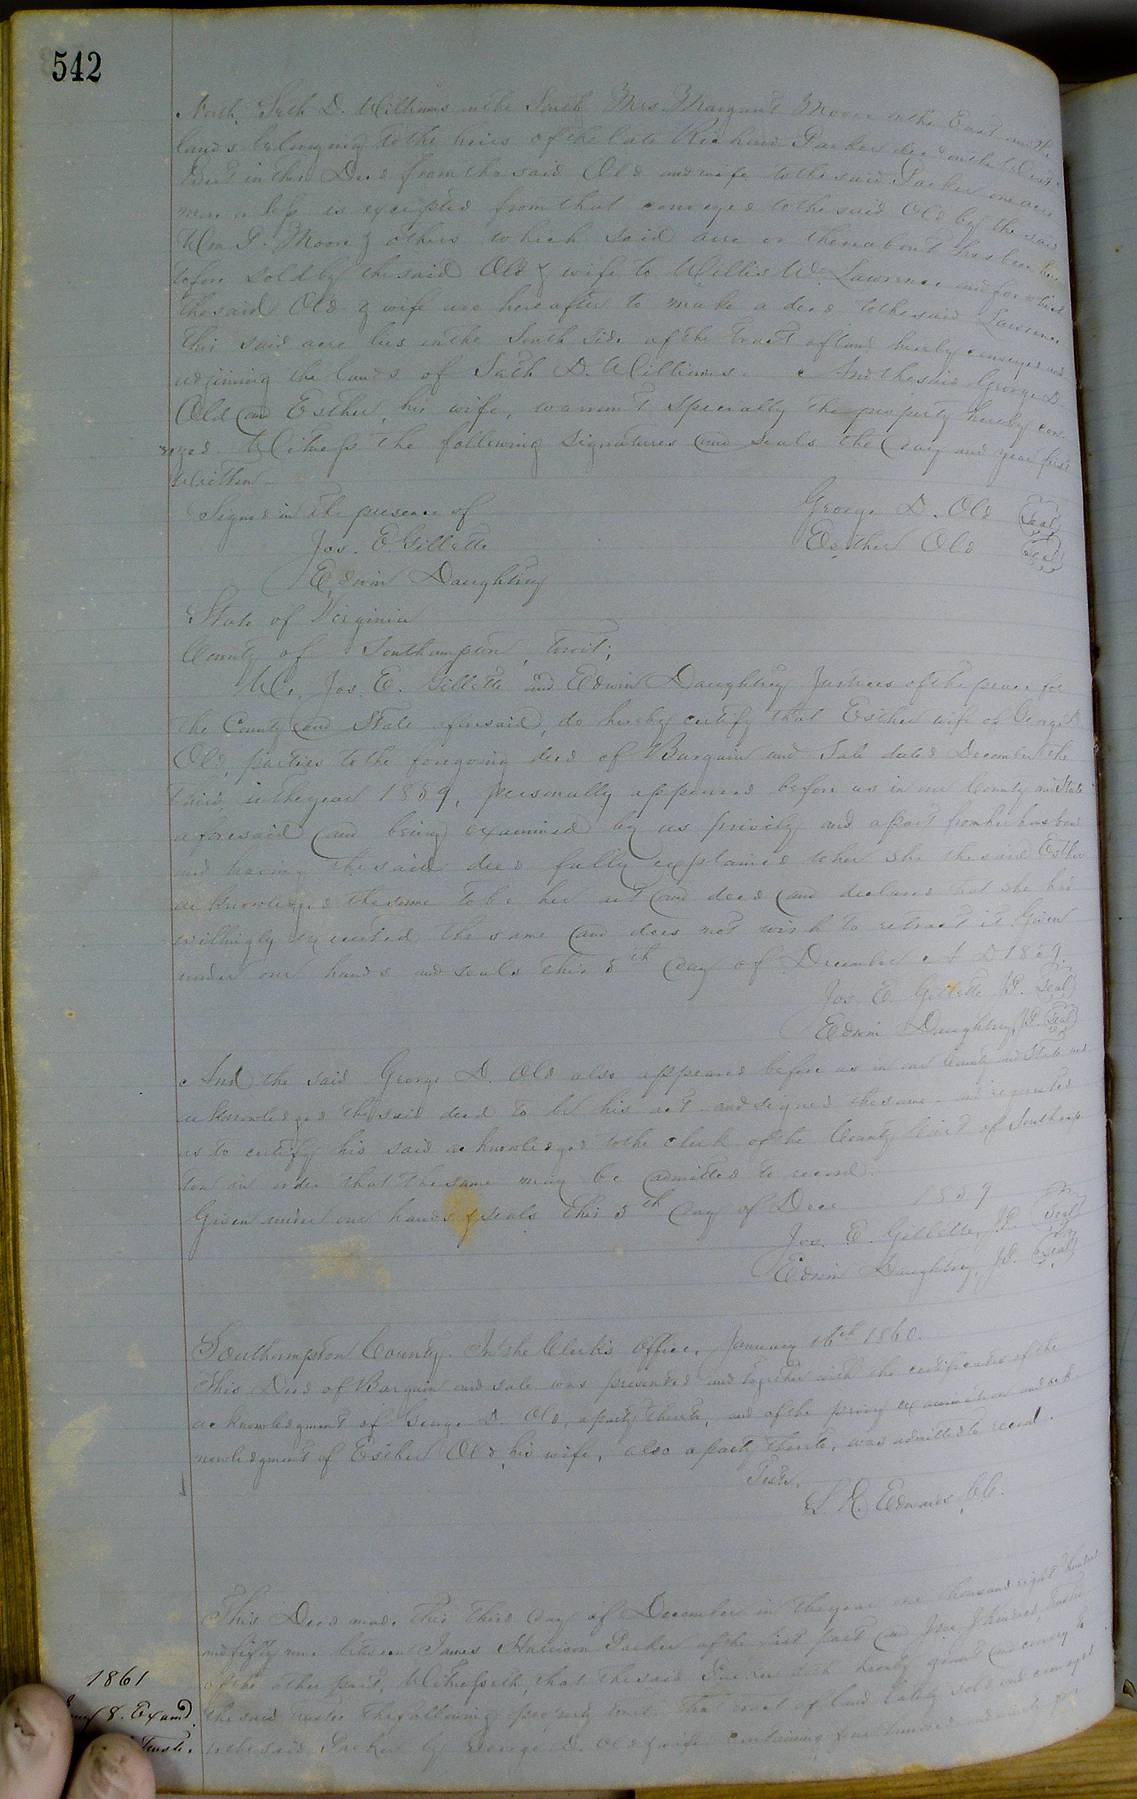 542
North, Seth D. Williams on the South Mrs. Margaret Moore on the East and the
lands belonging to the heirs of the late Richard Parker dec'd on the West.
But in this Deed from the said Old and wife to the said Parker one acre
more or less is excepted from that conveyed to the said Old by the said
Wm P. Moore & others which said acre or thereabout has been here
tofore sold by the said Old & wife to Willis W. Lawrence and for which
the said Old & wife are hereafter to make a deed to the said Lawrence
This said acre lies on the South Side of the tract of land hereby conveyed and
adjoining the lands of Seth D. Williams. And the said George D.
Old and Esther, his wife, warrant specially the property hereby con
veyed. Witness the following signatures and seals the day and year first
written.
Signed in the presence of George D. Old Seal
Jos. E. Gillette Esther Old Seal
Edwin Daughtrey
State of Virginia
County of Southampton, towit;
We, Jos. E. Gillette and Edwin Daughtrey Justices of the peace for
the County and State aforesaid, do hereby certify that Esther wife of George D.
Old, parties to the foregoing deed of Bargain and Sale dated December the
third, in the year 1859, personally appeared before us in our County and State
aforesaid and being examined by us privily and apart from her husband
and having the said deed fully explained to her she the said Esther
acknowledged the same to be her act and deed and declared that she had
willingly executed the same and does not wish to retract it Given
under our hands and seals this 5th day of December A D 1859.
Jos. E. Gillette J.P. Seal
Edwin Daughtrey, J.P. Seal
And the said George D. Old also appeared before us in our County and State and
acknowledged the said deed to be his act and signed the same and requested
us to certify his said acknowledged to the clerk of the County Court of Southamp
ton in order that the same may be admitted to record.
Given under our hands & seals this 5th day of Dec. 1859
Jos. E. Gillette, J.P. Seal
Edwin Daughtrey, J.P. Seal
Southampton County. In the Clerk's Office, January 16th 1860.
This Deed of Bargain and sale was presented and together with the certificates of the
acknowledgment of George D. Old, a party thereto, and of the privy examination and ack
nowledgment of Esther Old, his wife, also a party thereto, was admitted to record.
Teste,
L. R. Edwards, CC.
This Deed made this third day of December in the year one thousand eight hundred
and fifty nine between James Harrison Parker of the first part and
of the other part, Witnesseth, that the said Parker doth hereby grant and convey to
1861
the said trustee the following property towit. That tract of land lately sold and conveyed
8. Exam'd
to the said Parker by George D. Old & wife containing four hundred and